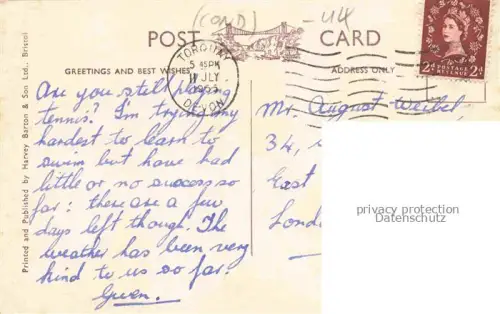 (COND) -44
POST CARD
GREETINGS AND BEST WISHES
ADDRESS ONLY
TORQUAY
5 45PM
11 JLY
DEVON
POSTAGE
REVENUE
2d 2d
Printed and Published by Harvey Barton & Son Ltd., Bristol
Are you still playing
tennis? I'm trying my
hardest to learn to
swim but have had
little or no success so
far: there are a few
days left though. The
weather has been very
kind to us so far.
Gwen.
Mr. August Weibel,
34,
East
London
privacy protection
Datenschutz